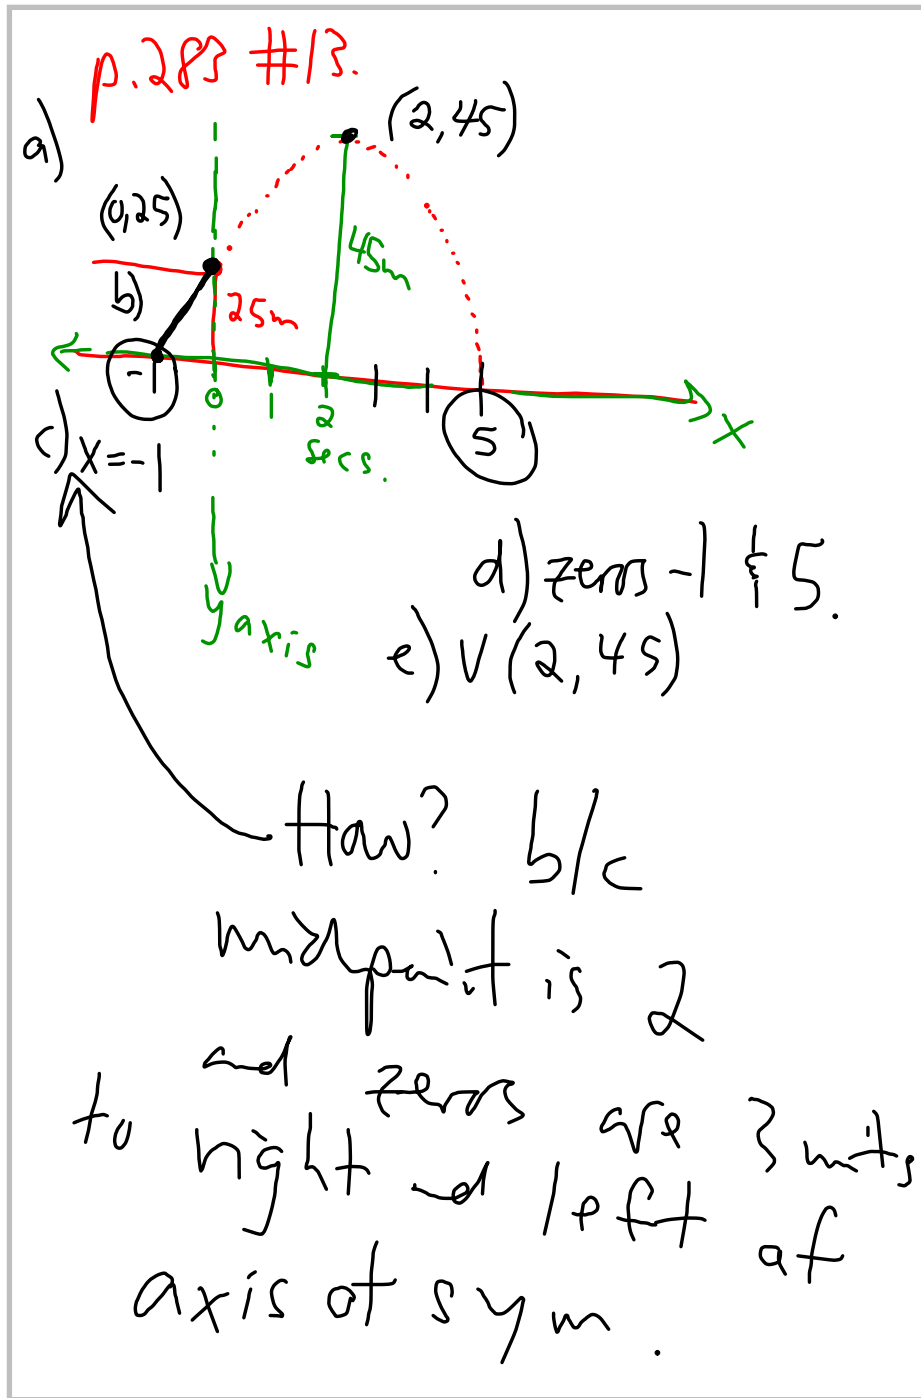 p.283 #13.
a)
(2,45)
(0,25)
45m
b)
25m
-1
0
1
2
5
secs.
x
c) x=-1
d) zeros -1 & 5.
y axis
e) V(2,45)
How? b/c
midpoint is 2
and zeros are 3 units
to right and left of
axis of sym.